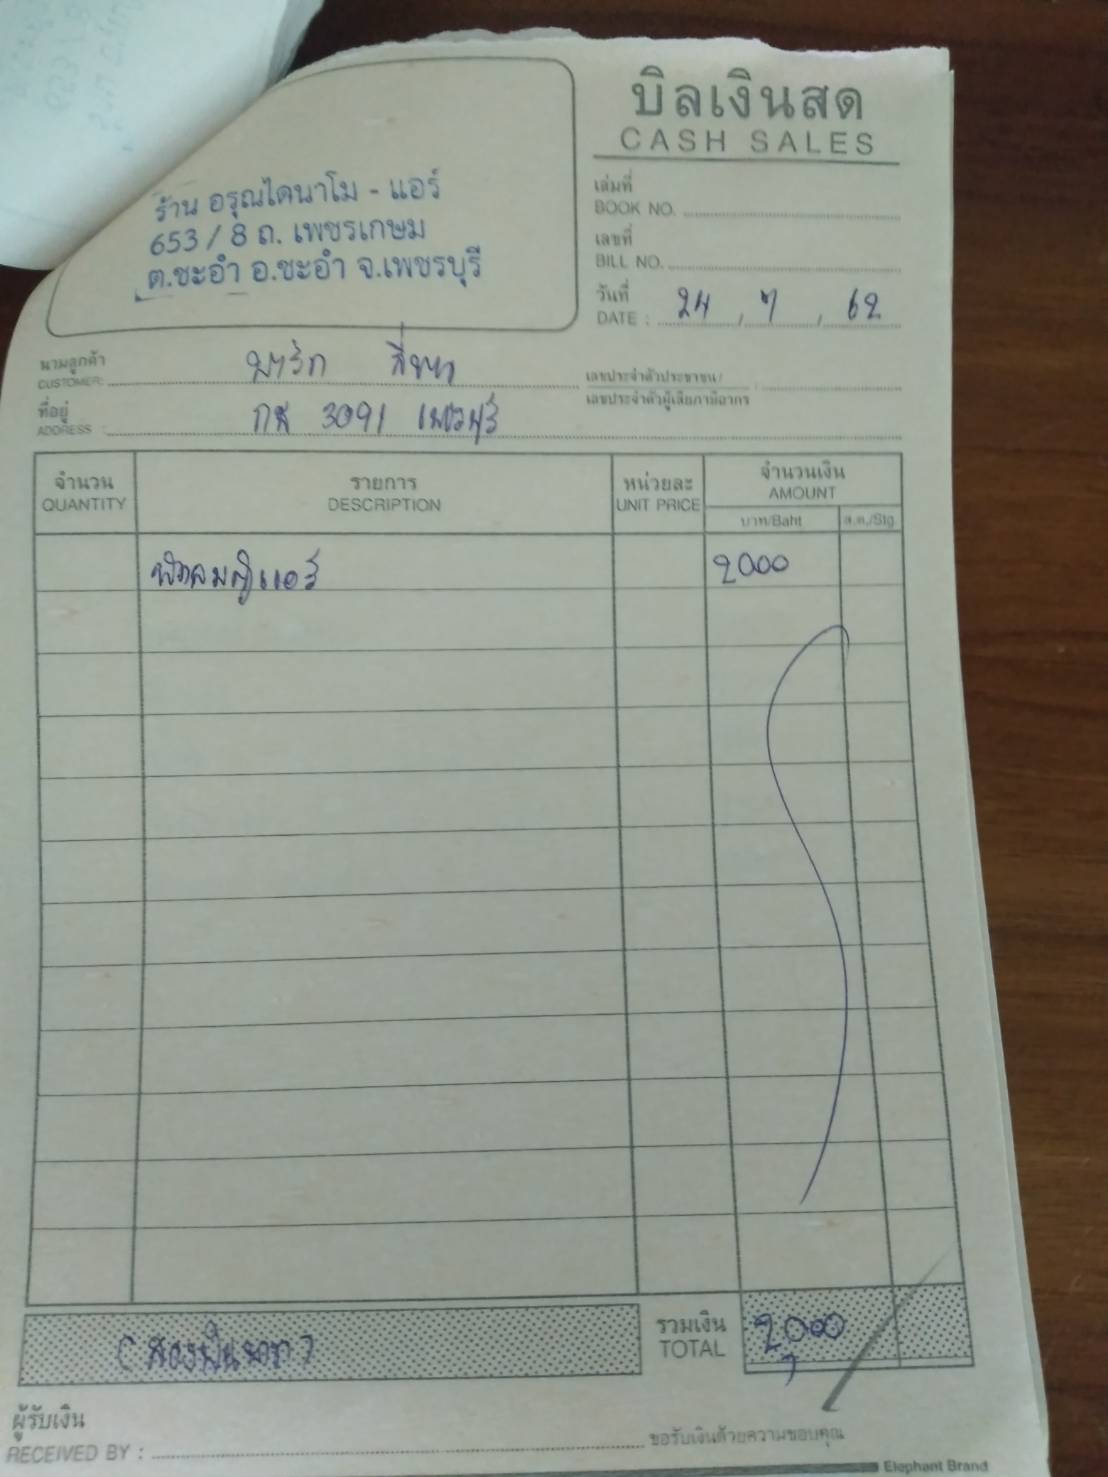 บิลเงินสด
CASH SALES
ร้าน อรุณไดนาโม - แอร์
653 / 8 ถ. เพชรเกษม
ต.ชะอำ อ.ชะอำ จ.เพชรบุรี
เล่มที่
BOOK NO.
เลขที่
BILL NO.
วันที่
DATE : 24 , 7 , 62
นามลูกค้า
CUSTOMER:
เลขประจำตัวประชาชน/
เลขประจำตัวผู้เสียภาษีอากร
ที่อยู่
ADDRESS : 3091 เพชรบุรี
จำนวน รายการ หน่วยละ จำนวนเงิน
QUANTITY DESCRIPTION UNIT PRICE AMOUNT
บาท/Baht ส.ต./Stg.
พัดลมตู้แอร์ 2000
(สองพันบาท)
รวมเงิน
TOTAL 2,000
ผู้รับเงิน
RECEIVED BY :
ขอรับเงินด้วยความขอบคุณ
Elephant Brand